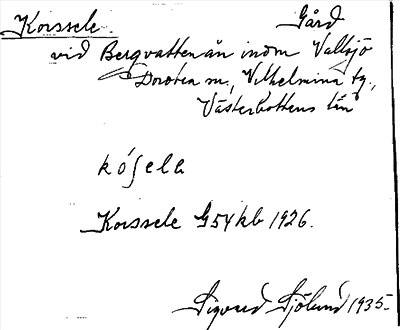 Korssele. Gård
vid Bergvattenån inom Vallsjö
Dorotea sn., Vilhelmina tg.,
Västerbottens län
kóʃela
Korssele G54kb 1926.
Sigvard Sjölund 1935.